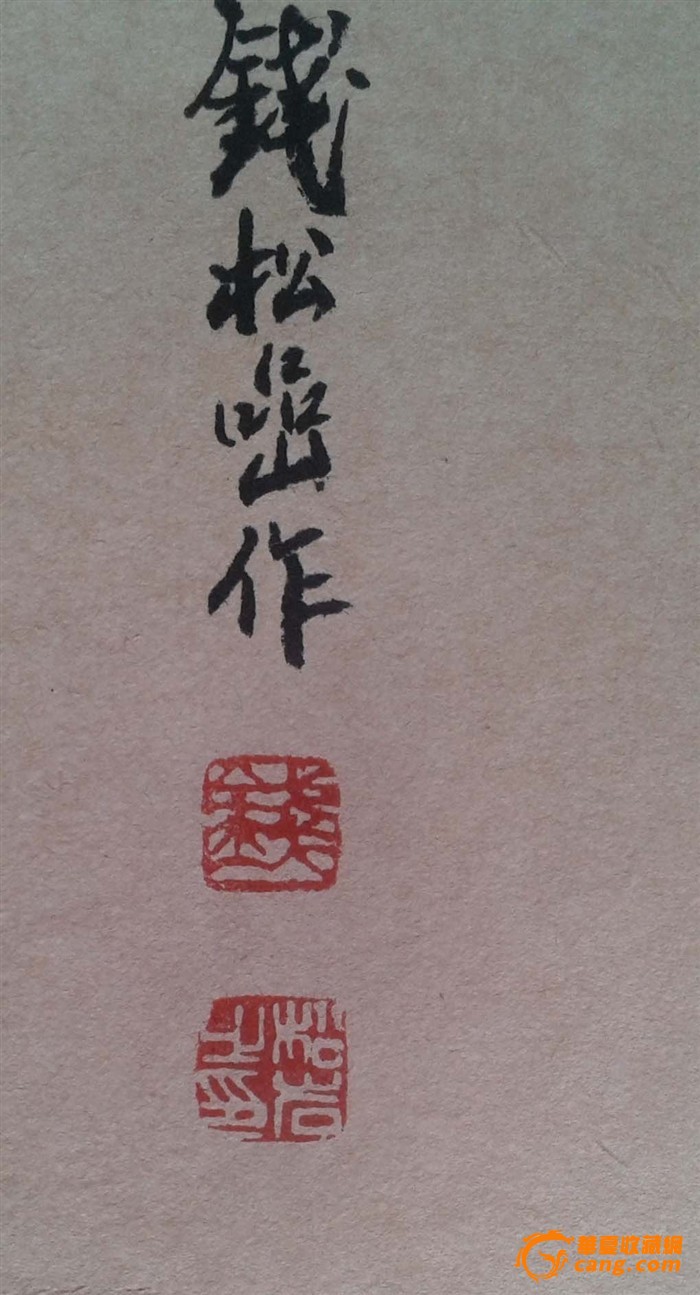 錢松嵒作
錢
之印
華夏收藏網
cang.com